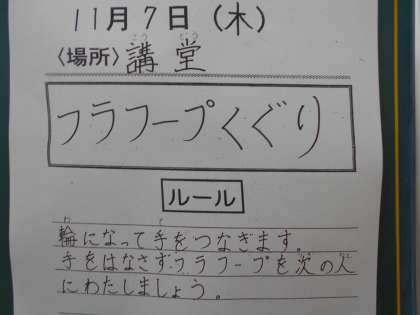 11月7日(木)
〈場所〉講堂
フラフープくぐり
ルール
輪になって手をつなぎます。
手をはなさずフラフープを次の人
にわたしましょう。